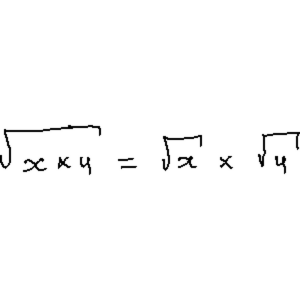 √(x × y) = √x × √y